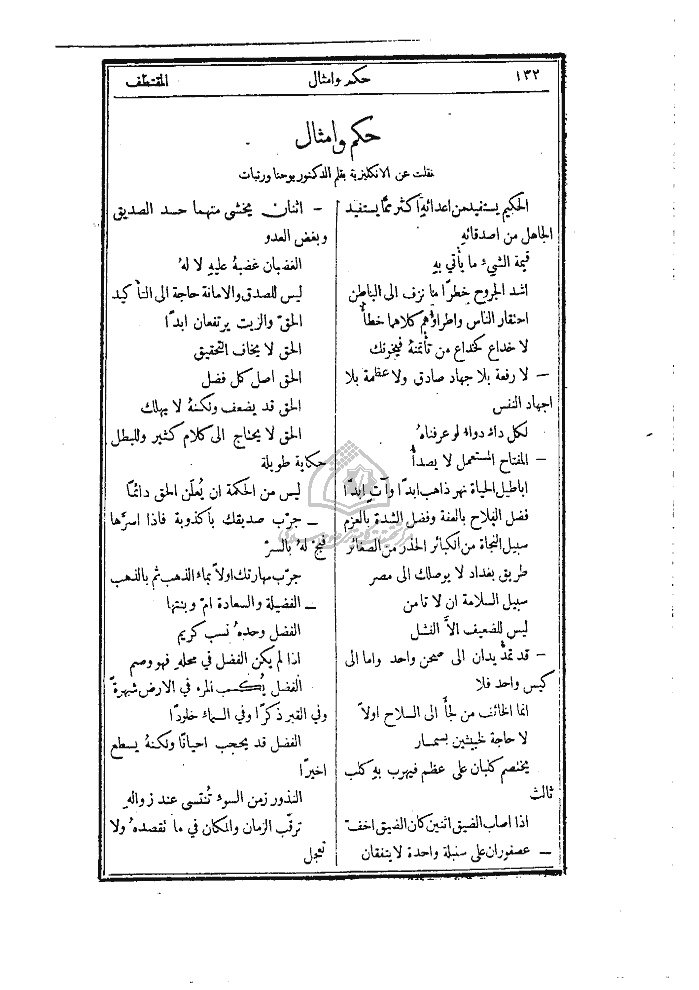 ١٣٢ حكم وامثال المقتطف
حكم وامثال
نقلت عن الانكليزية بقلم الدكتور يوحنا ورتبات
الحكيم يستفيد من اعدائهِ اكثر ممَّا يستفيد
الجاهل من اصدقائهِ
قيمة الشيء ما يأتي بهِ
اشد الجروح خطرًا ما نزف الى الباطن
احتقار الناس واطراؤهم كلاهما خطأٌ
لا خداع كخداع من تأتمنهُ فيخونك
— لا رفعة بلا جهاد صادق ولا عظمة بلا
اجهاد النفس
لكل داءٍ دواءٌ لو عرفناهُ
— المفتاح المستعمل لا يصدأُ
اباطيل الحياة نهر ذاهب ابدًا وآتٍ ابدًا
فضل الفلاح بالعفة وفضل الشدة بالعزم
سبيل النجاة من الكبائر الحذر من الصغائر
طريق بغداد لا يوصلك الى مصر
سبيل السلامة ان لا تامن
ليس للضعيف الاَّ الفشل
— قد تمتدُّ يدان الى صحن واحد واما الى
كيس واحد فلا
انما الخائف من لجأَ الى السلاح اولاً
لا حاجة لخبيثين بسمسار
يختصم كلبان على عظم فيهرب بهِ كلب
ثالث
اذا اصاب الضيق اثنين كان الضيق اخف
— عصفوران على سنبلة واحدة لا يتفقان
— اثنان يخشى منهما حسد الصديق
وبغض العدو
الغضبان غضبهُ عليهِ لا لهُ
ليس للصدق والامانة حاجة الى التأكيد
الحقّ والزيت يرتفعان ابدًا
الحق لا يخاف التحقيق
الحق اصل كل فضل
الحق قد يضعف ولكنهُ لا يهلك
الحق لا يحتاج الى كلام كثير وللبطل
حكاية طويلة
ليس من الحكمة ان يُعلَن الحق دائمًا
— جرّب صديقك بأكذوبة فاذا اسرَّها
فبح لهُ بالسرّ
جرّب مهارتك اولاً بماء الذهب ثم بالذهب
— الفضيلة والسعادة امّ وبنتها
الفضل وحدهُ نسب كريم
اذا لم يكن الفضل في محلهِ فهو وصم
الفضل يُكسب المرء في الارض شهرةً
وفي القبر ذكرًا وفي السماء خلودًا
الفضل قد يحجب احيانًا ولكنهُ يسطع
اخيرًا
النذور زمن السوء تُنسى عند زوالهِ
ترقَّب الزمان والمكان في ما تقصدهُ ولا
تعجل